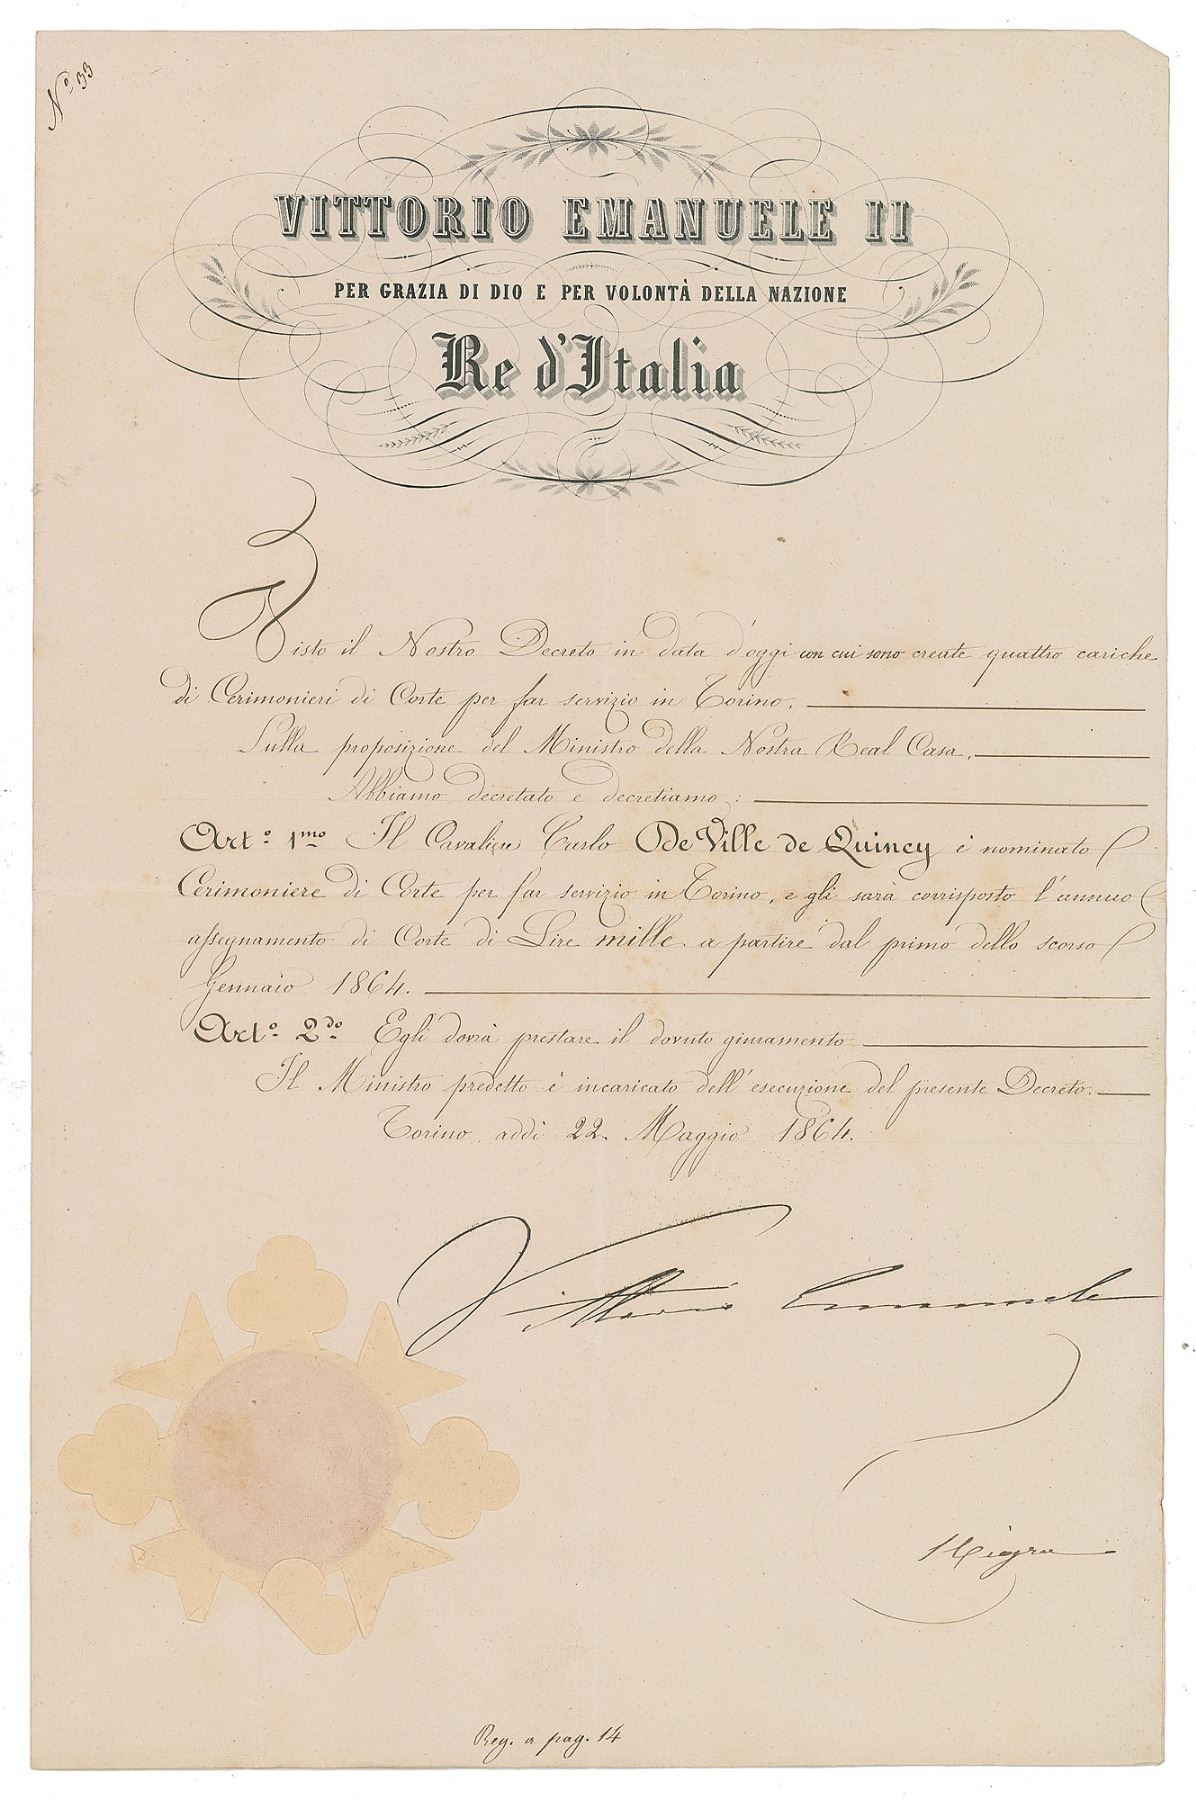 N.º 33
VITTORIO EMANUELE II
PER GRAZIA DI DIO E PER VOLONTÀ DELLA NAZIONE
Re d'Italia
Visto il Nostro Decreto in data d'oggi con cui sono create quattro cariche
di Cerimonieri di Corte per far servizio in Torino.
Sulla proposizione del Ministro della Nostra Real Casa.
Abbiamo decretato e decretiamo:
Art.º 1.mo Il Cavaliere Carlo De Ville de Quincy è nominato
Cerimoniere di Corte per far servizio in Torino, e gli sarà corrisposto l'annuo
assegnamento di Corte di Lire mille a partire dal primo dello scorso
Gennaio 1864.
Art.º 2.do Egli dovrà prestare il dovuto giuramento
Il Ministro predetto è incaricato dell'esecuzione del presente Decreto.
Torino, addì 22 Maggio 1864.
Vittorio Emanuele
Nigra
Reg. a pag. 14